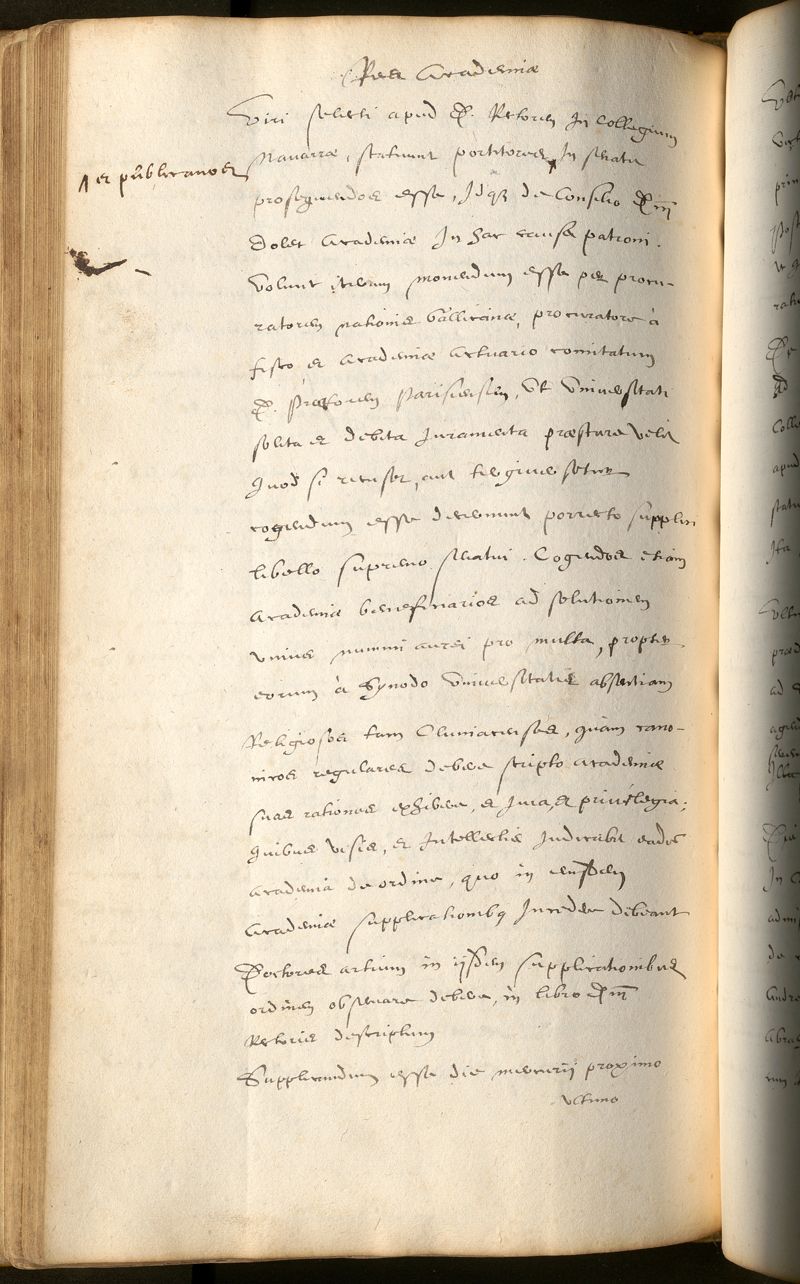 Res Academiæ
Viri selecti apud D. Rectorem In Collegium
Navarræ, statuunt portitores ⁁ In senatu
⁁ et publicanos
prosequendos esse, Idq3 de Consilio D
Academiæ In hac causa patroni.
Volunt iterum monendum esse per procu-
ratorem nationis Gallicanæ, procuratore à
fisco et Academiæ Actuario comitatum
D. Prætorem Parisiensem, Ut Universitati
solita et debita Juramenta præstare velit
Quod si recuset, aut
cogendum esse decernunt porrecto supplici
libello supremo senatui. Cogendos etiam
Academiæ beneficiarios ad solutionem
unius nummi aurei pro multa, propter
eorum à Synodo Universitatis absentiam
Religiosos tam Cluniacenses, quam cano-
nicos regulares debere scripto Academiæ
suas rationes exhibere, et Jura, et privilegia;
Quibus visis, et Intellectis Judicabit eadem
Academia de ordine, quo in eiusdem
Academiæ supplicationibq Incedere debeant
Doctores artium in iisdem supplicationibus
ordinem observare debere, in libro D
Rectoris descriptum
Supplicandum esse die mercurii proximo